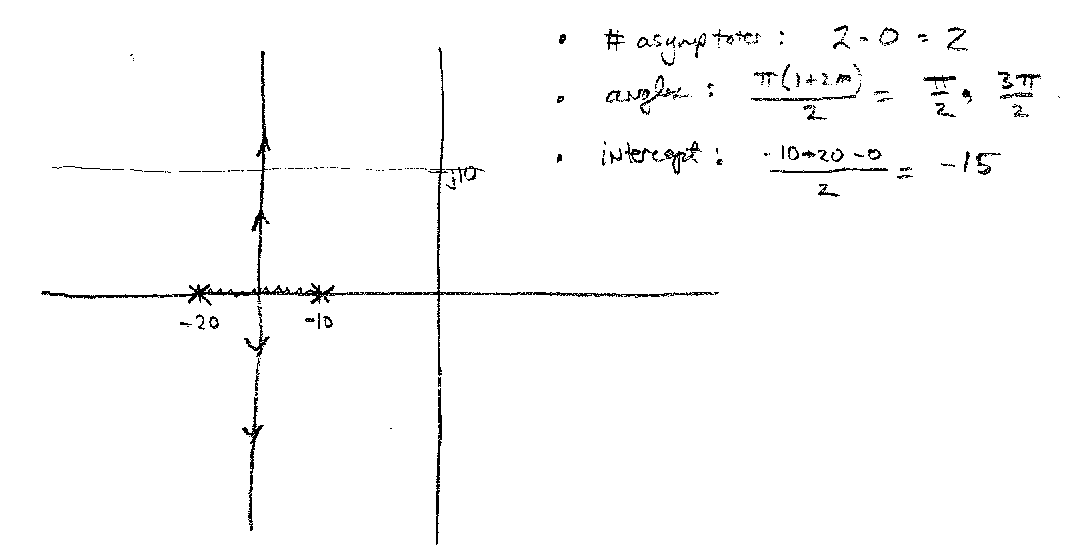 • # asymptotes : 2 - 0 = 2
• angles : π(1+2m)/2 = π/2, 3π/2
• intercept : -10-20-0/2 = -15
j10
-20 -10